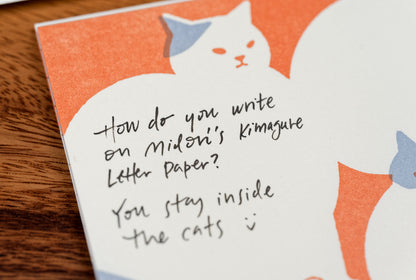 How do you write
on Midori's Kimagure
Letter Paper?
You stay inside
the cats :)